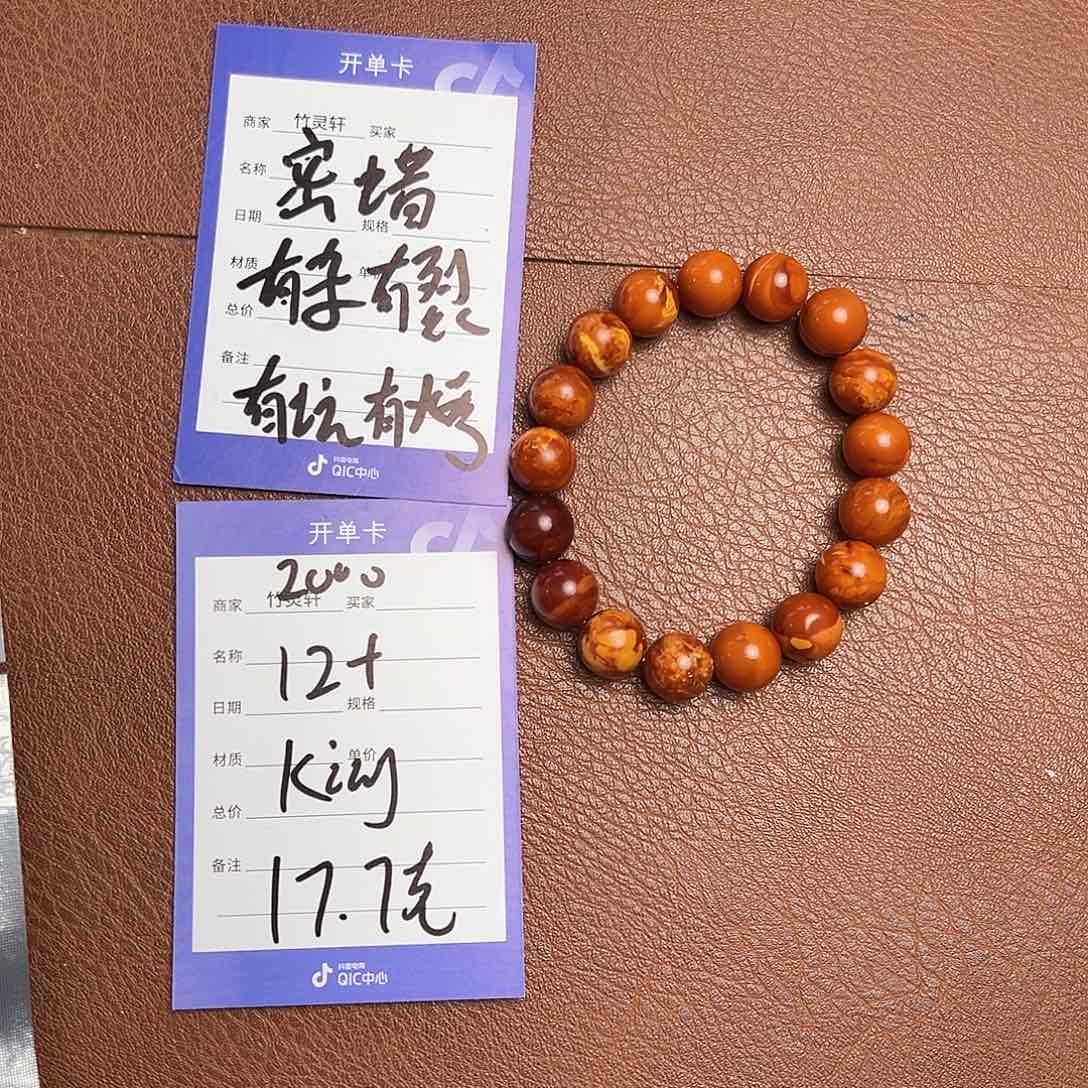 开单卡
商家 竹灵轩 买家
名称 密蜡
日期 规格
材质 有杂有裂 单
总价
备注
有坑有
抖音电商
QIC中心
开单卡
2000
商家 竹灵轩 买家
名称 12+
日期 规格
材质 King 单价
总价
备注 17.7克
抖音电商
QIC中心